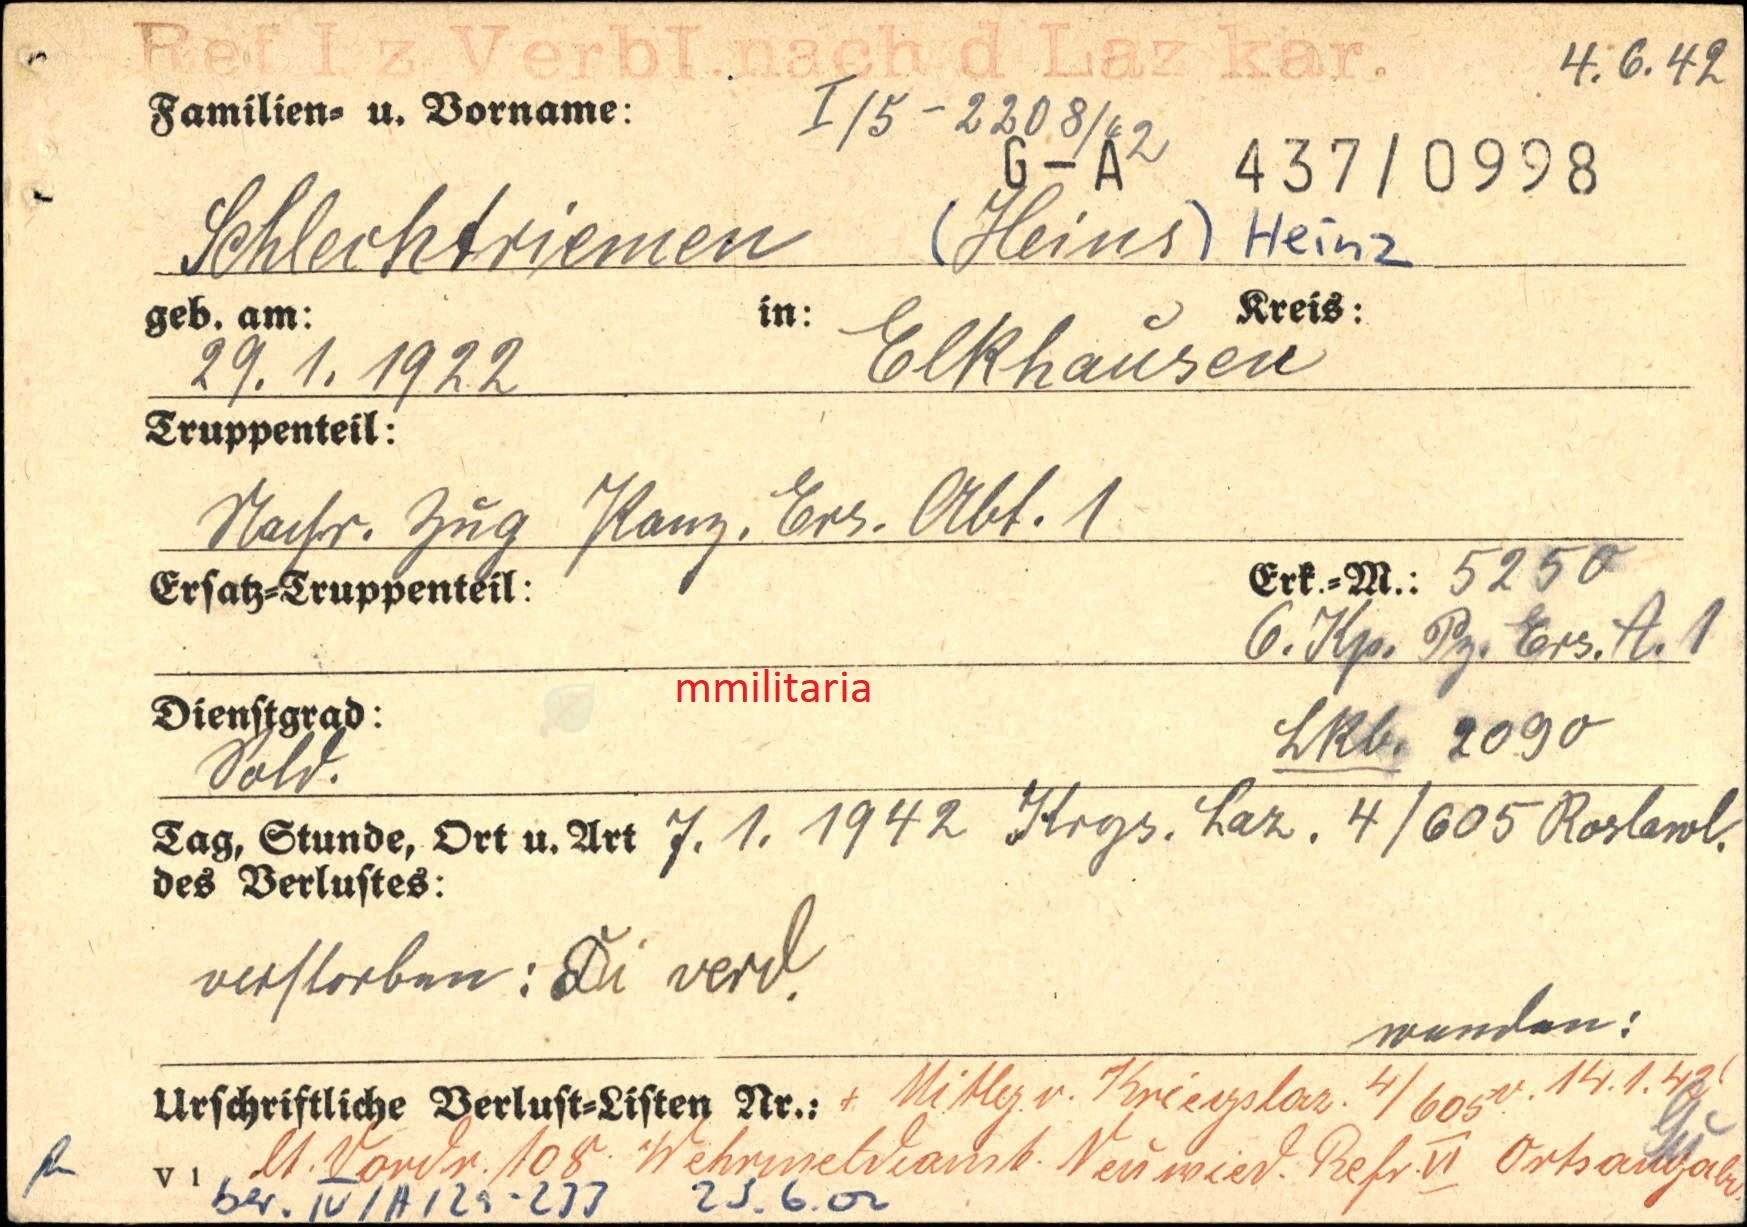 Ref I z Verbl. nach d Laz kar.
4.6.42
Familien- u. Vorname:
I/5-2208/42
G-A 437/0998
Schlechtriemen (Heins) Heinz
geb. am: in: Kreis:
29.1.1922 Elkhausen
Truppenteil:
Nachr. Zug Panz. Ers. Abt. 1
Ersatz-Truppenteil: Erk.-M.: 5250
6. Kp. Pz. Ers. A. 1
mmilitaria
Dienstgrad:
Lkb. 2090
Sold.
Tag, Stunde, Ort u. Art 7.1.1942 Krgs. Laz. 4/605 Roslawl.
des Verlustes:
verstorben: Di verd.
wenden:
Urschriftliche Verlust-Listen Nr.: + Mittlg. v. Kriegslaz. 4/605 v. 14.1.42
V 1 lt. Vordr. 108 Wehrmeldeamt Neuwied. Refr. VI Ortsangabe
ber. IV/A